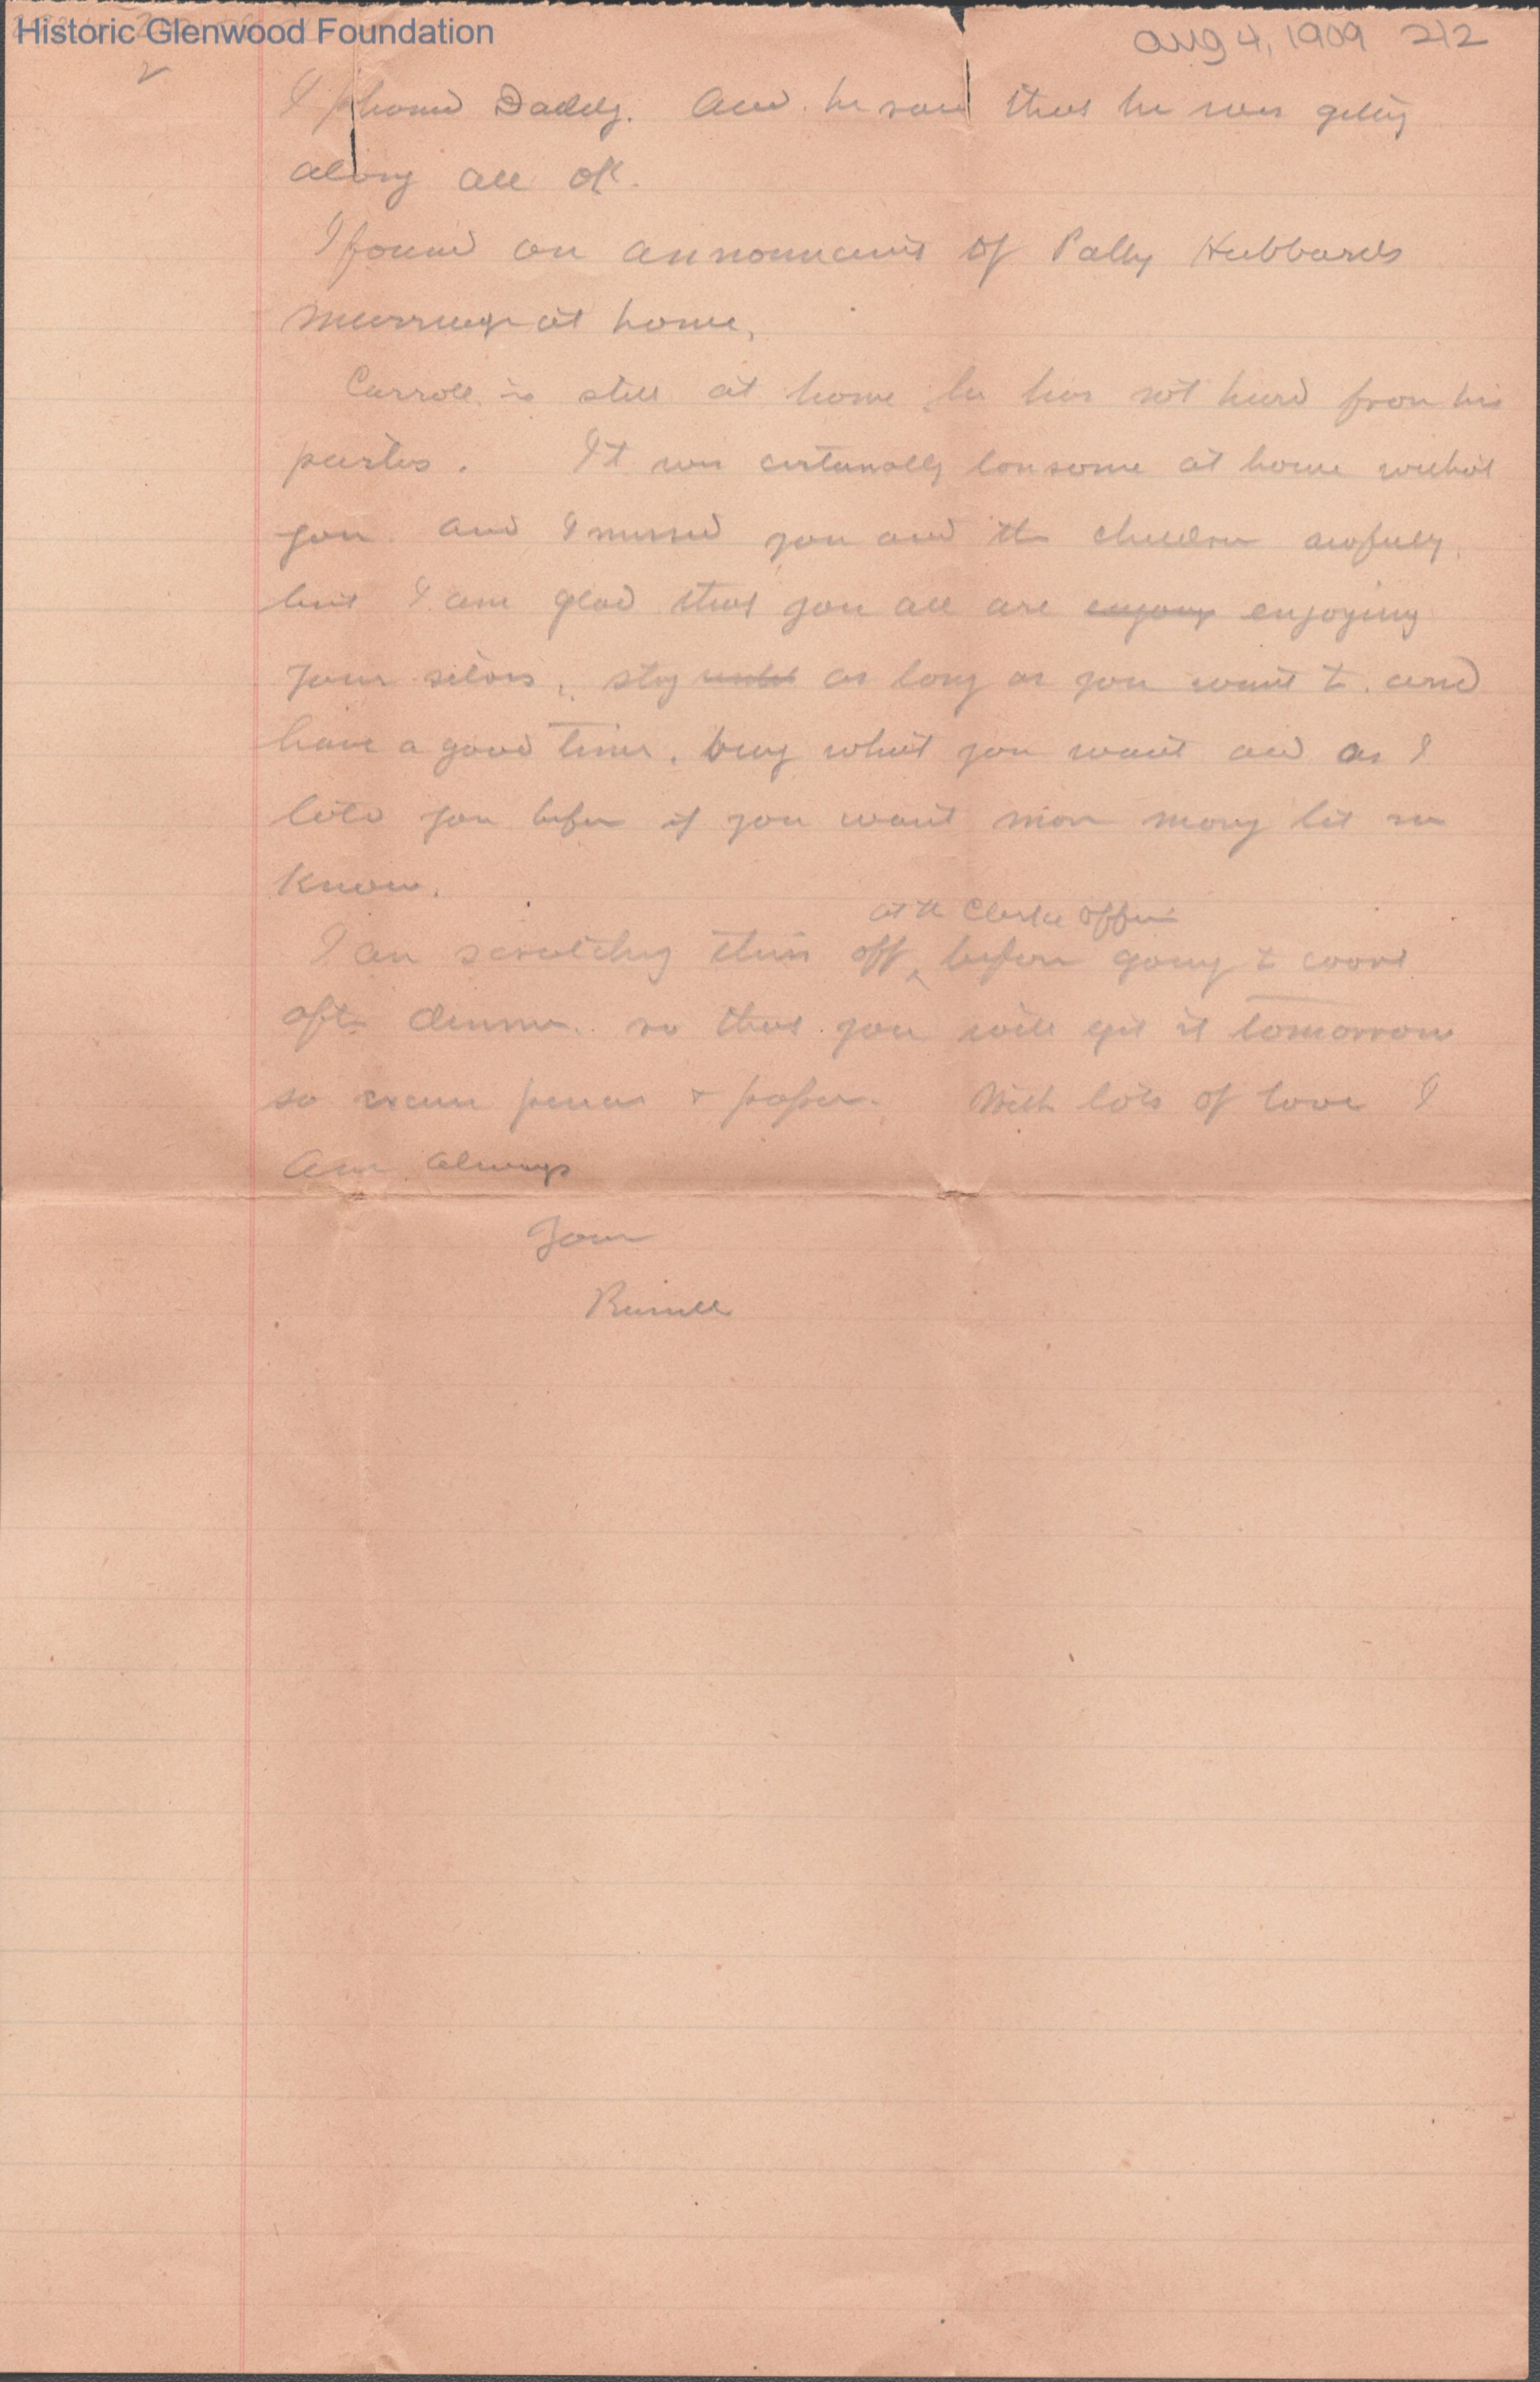 Historic Glenwood Foundation
Aug 4, 1909 212
2
I phoned Daddy. And he said that he was getting
along all OK.
I found an announcement of Patty Hubbards
marriage at home,
Carroll is still at home he has not heard from his
parties. It was certainally lonsome at home without
you and I missed you and the children awfully.
but I am glad that you all are enjoying
your selves, stay until as long as you want to and
have a good time. buy what you want and as I
told you before if you want more money let me
know.
at the Clerks office
I am scratching this off before going to court
after dinner so that you will get it tomorrow
so excuse pencil & paper. With lots of love I
Am Always
Your
Russell